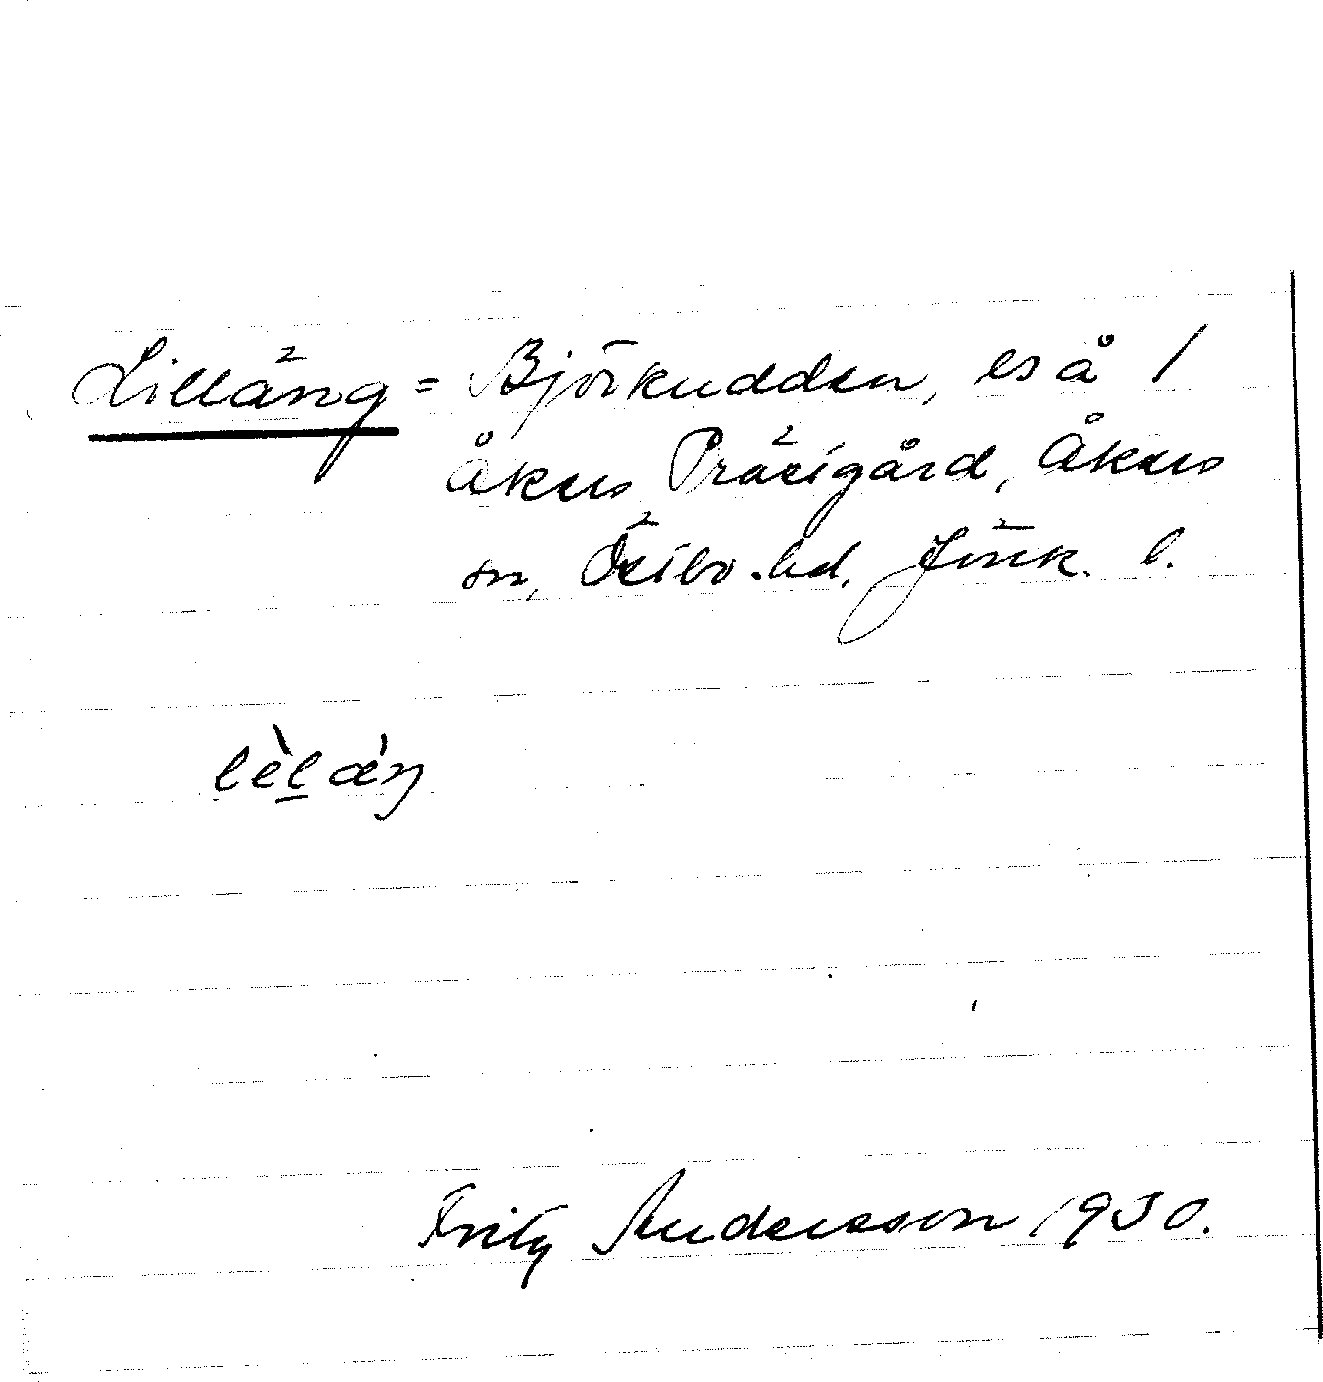 Lilläng = Björkudden, ls å 1
Åkers Prästgård, Åkers
sn, Östbo hd. Jönk. l.
lèlæ̀ŋ
Fritz Andersson 1930.